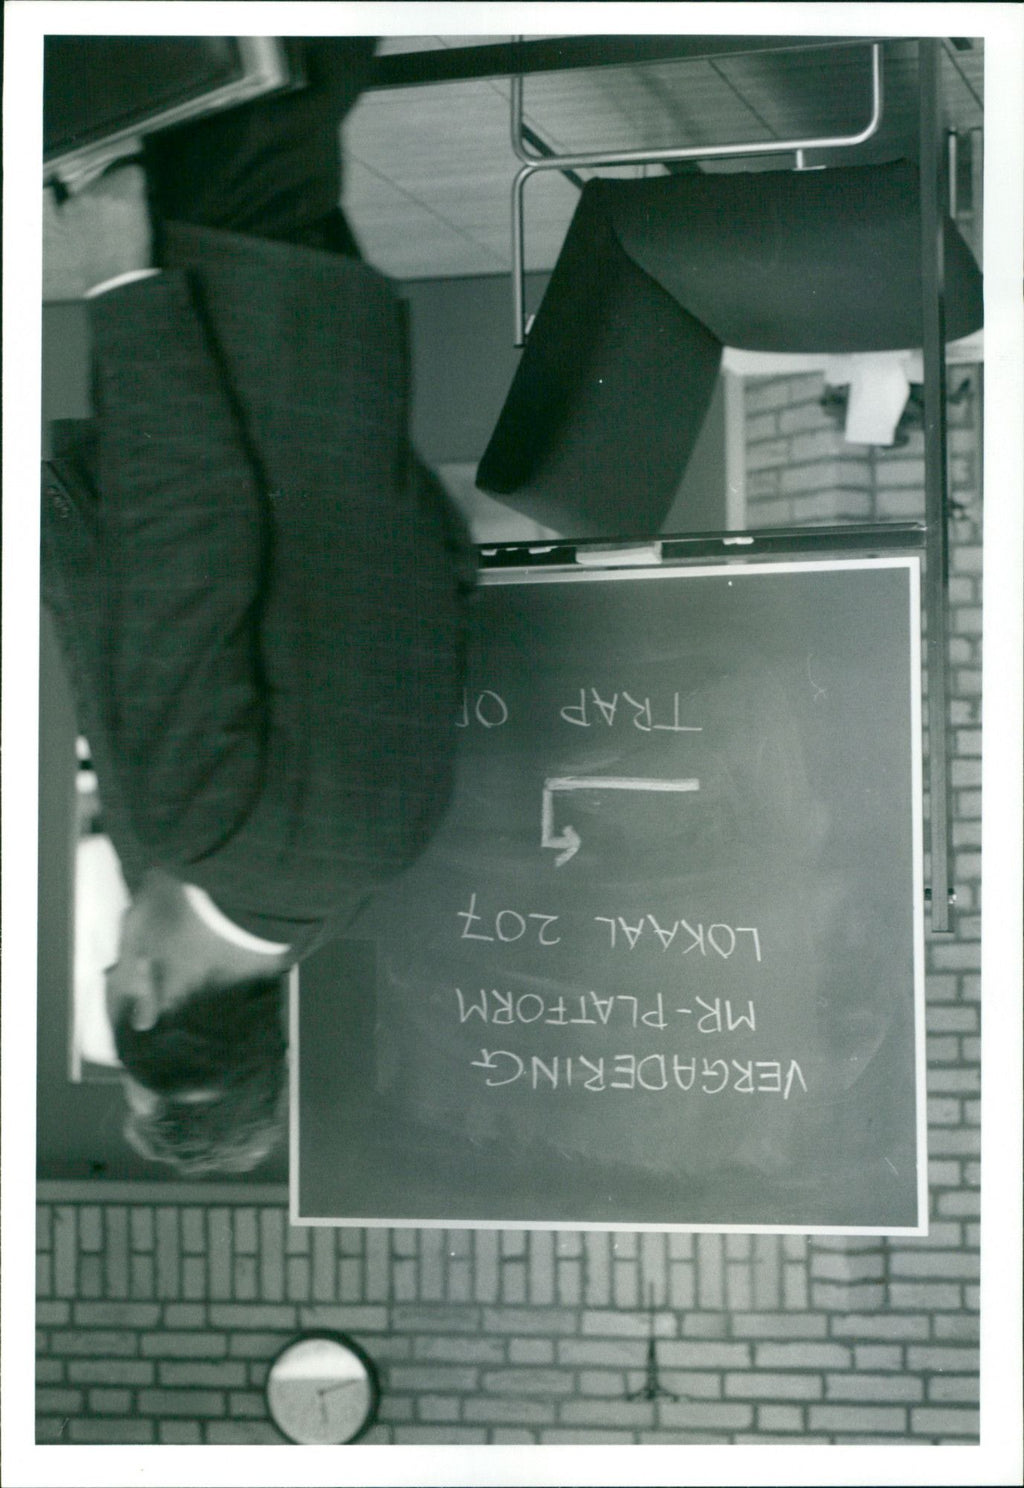 VERGADERING
MR-PLATFORM
LOKAAL 207
TRAP OP